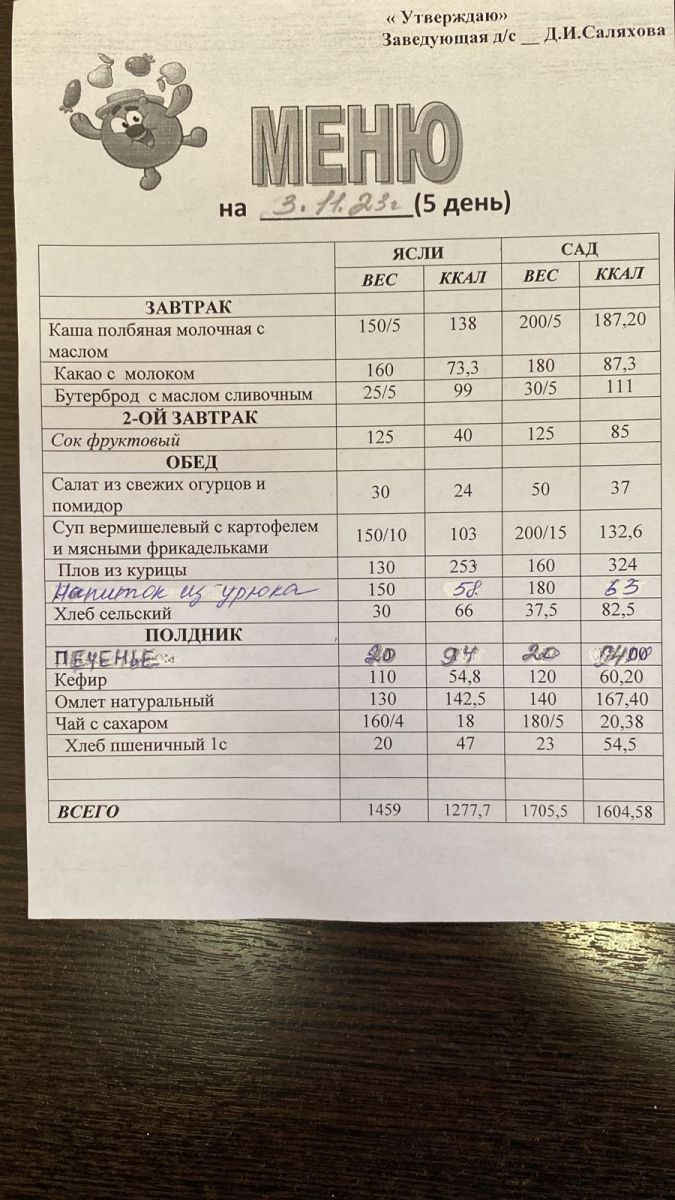 « Утверждаю»
Заведующая д/с __ Д.И.Саляхова
МЕНЮ
на 3.11.23г (5 день)
ЯСЛИ САД
ВЕС ККАЛ ВЕС ККАЛ
ЗАВТРАК
Каша полбяная молочная с 150/5 138 200/5 187,20
маслом
Какао с молоком 160 73,3 180 87,3
Бутерброд с маслом сливочным 25/5 99 30/5 111
2-ОЙ ЗАВТРАК
Сок фруктовый 125 40 125 85
ОБЕД
Салат из свежих огурцов и 30 24 50 37
помидор
Суп вермишелевый с картофелем 150/10 103 200/15 132,6
и мясными фрикадельками
Плов из курицы 130 253 160 324
Напиток из урюка 150 58 180 63
Хлеб сельский 30 66 37,5 82,5
ПОЛДНИК
ПЕЧЕНЬЕ 20 94 20
Кефир 110 54,8 120 60,20
Омлет натуральный 130 142,5 140 167,40
Чай с сахаром 160/4 18 180/5 20,38
Хлеб пшеничный 1с 20 47 23 54,5
ВСЕГО 1459 1277,7 1705,5 1604,58